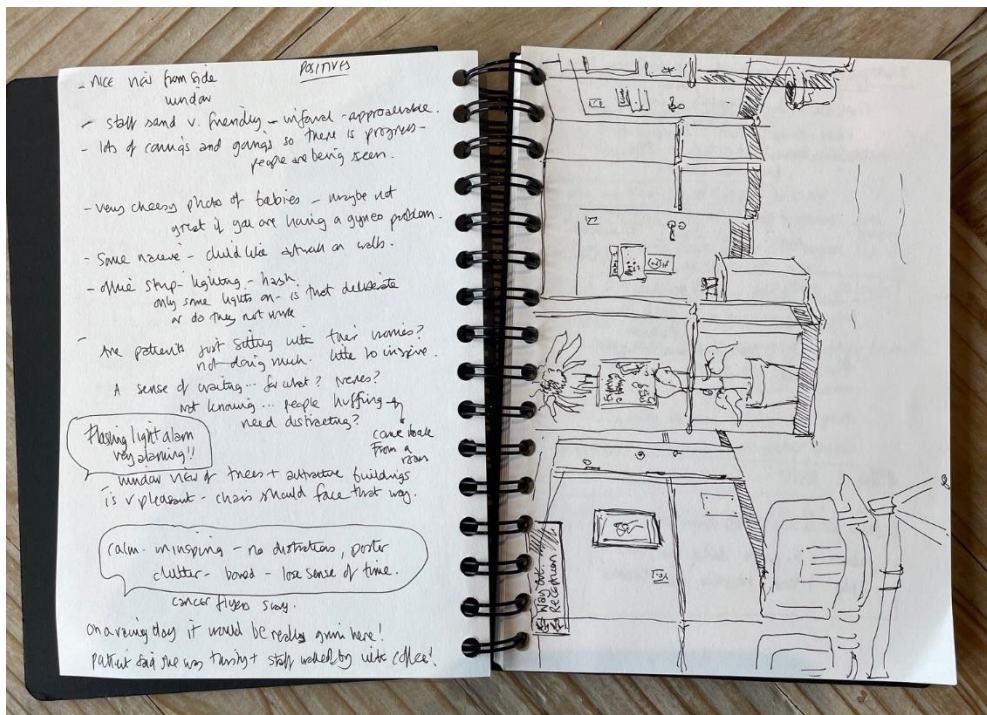 POSITIVES
- nice view from side
window
- staff sound v. friendly - informal - approachable.
- lots of comings and goings so there is progress -
people are being seen.
- very cheesy photo of babies - maybe not
great if you are having a gyneo problem.
- Some naieve - child like artwork on walls.
- office strip-lighting - harsh.
only some lights on - is that deliberate
or do they not work
- Are patients just sitting with their worries?
not doing much. little to inspire.
A sense of waiting... for what? news?
not knowing... people huffing
need distracting?
came back
from a
room
Flashing light alarm
very alarming!!
- window view of trees + attractive buildings
is v pleasant - chairs should face that way.
calm. uninspiring - no distractions, poster
clutter - bored - lose sense of time.
cancer flyers scary.
On a rainy day it would be really grim here!
patient said she was thirsty + staff walked by with coffee!
Way out
Reception